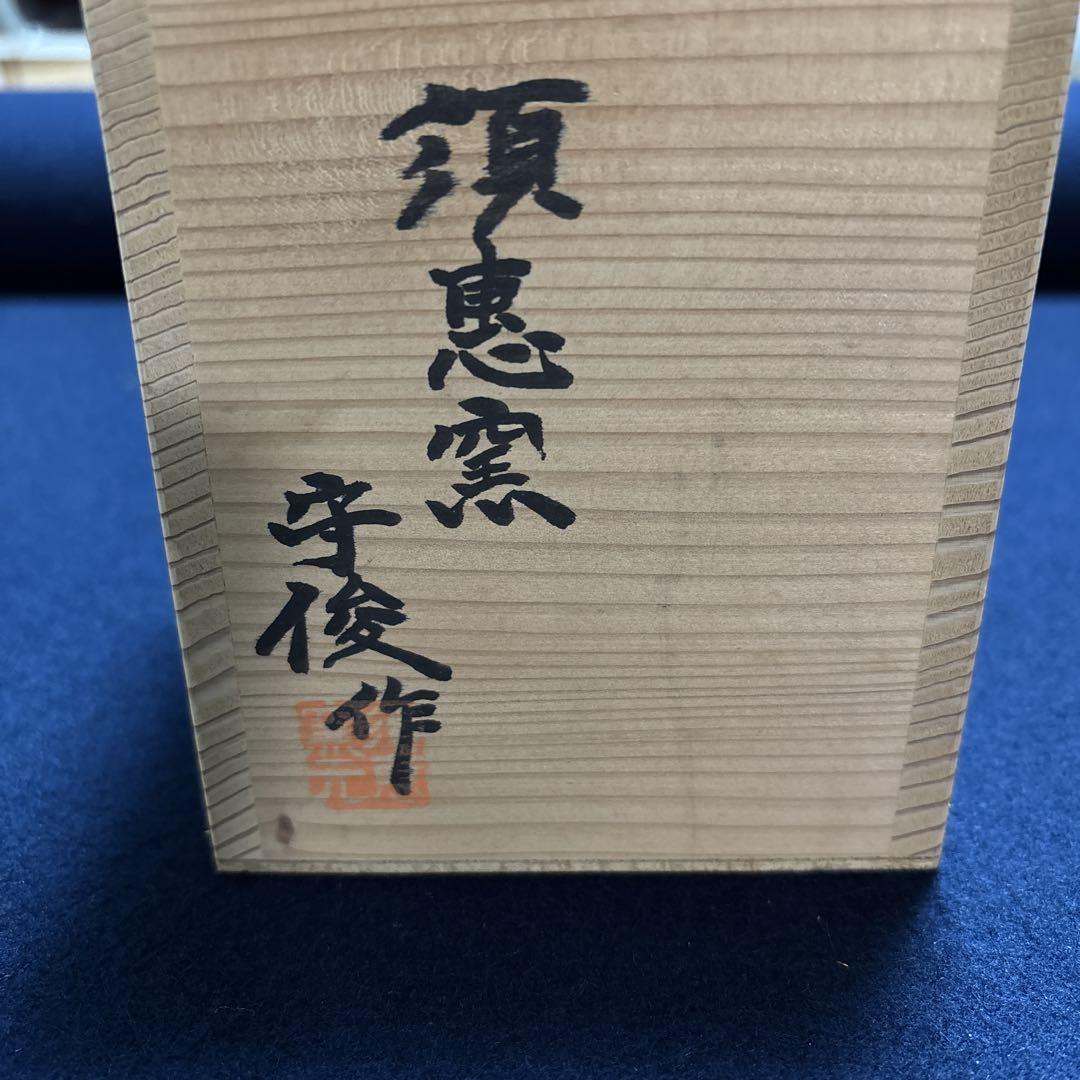 須恵窯
守俊作